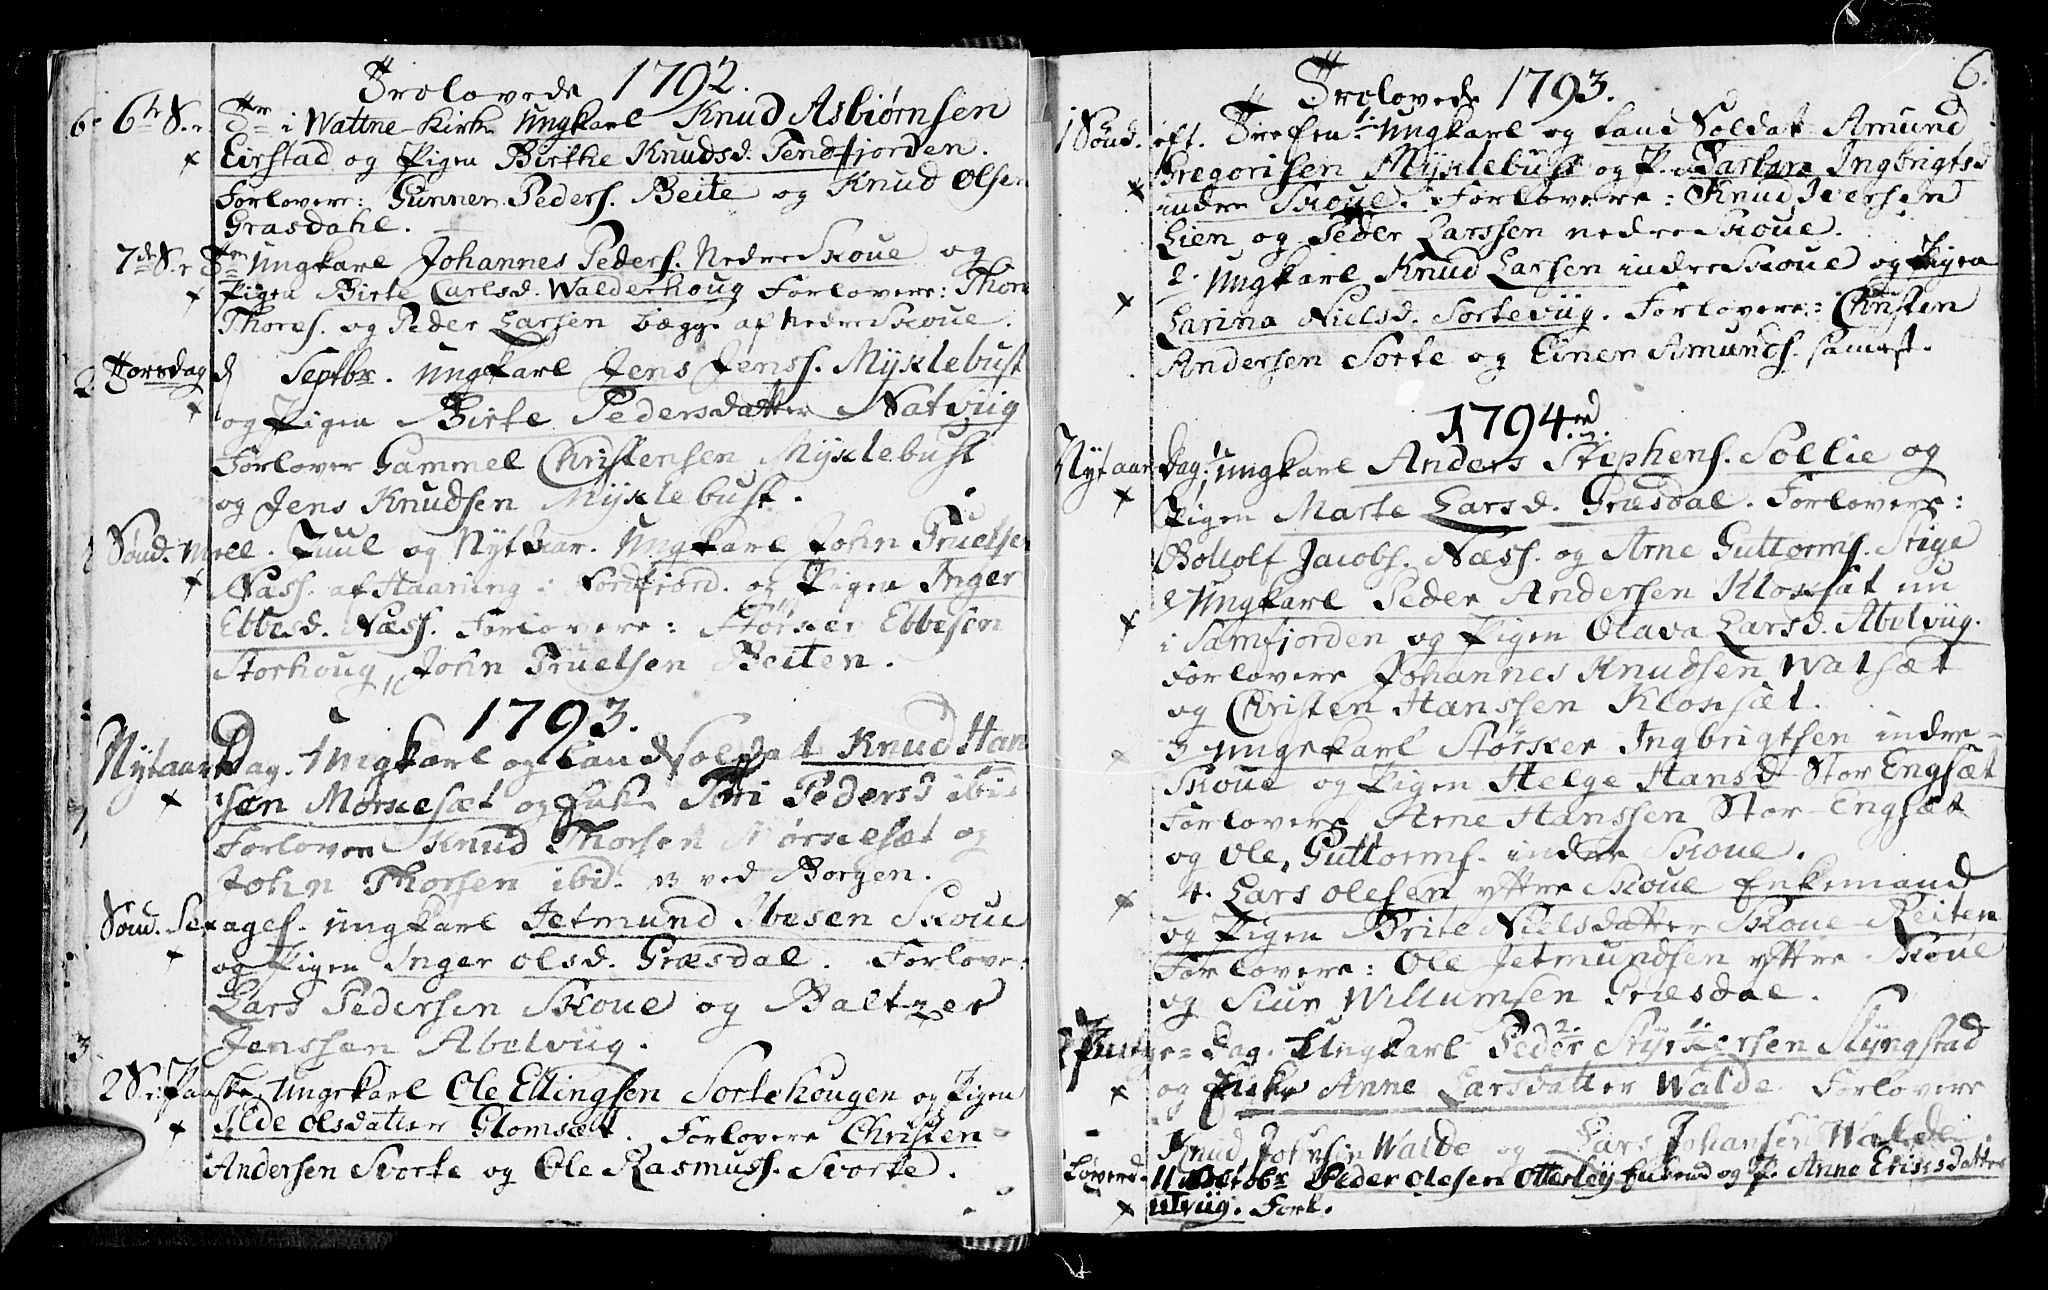 Trolovede 1792.
6te S. e. Tr. i Wattne Kirke Ungkarl Knud Asbiørnsen
Eirstad og Pigen Birthe Knudsd. Tendfjorden.
Forlovere: Gunner Peders. Beite og Knud Olsen
Grasdahl.
7de S. e. Tr. Ungkarl Johannes Peders. Nedre Skoue og
Pigen Birte Carlsd. Walderhoug Forlovere: Thore
Thores. og Peder Larsen begge af Nedre Skoue.
Torsdag d Septbr. Ungkarl Jens Jenss. Myklebust
og Pigen Birte Pedersdatter Natviig
Forlover Gammel Christensen Myklebust
og Jens Knudsen Myklebust.
Sönd. Mell. Juul og Nyt Aar. Ungkarl John Truelsen
Næss. af Haaring i Nordfiord. og Pigen Inger
Ebbesd. Næss. Forlovere: Størker Ebbesen
Storhoug, John Truelsen Beiten.
1793.
Nytaars Dag. Ungkarl og Land Soldat Knud Han
sen Mørkesæt og Enke Peders D ibid
Forlovere Knud Thorsen Mørkesæt og
John Thorsen ibid. ved Borgen.
Sönd. Sexages. Ungkarl Jetmund Ibesen Skoue
og Pigen Inger Olsd. Græsdal. Forlove:
Lars Pedersen Skoue og Baltzer
Jenssen Abelviig.
2 S. e. Paaske, Ungekarl Ole Ellingsen Sortehougen og Pigen
Ilde Olsdatter Glomsæt. Forlovere Christen
Andersen Svorte og Ole Rasmuss. Svorte.
6.
Trolovede 1793.
1 Sönd. eft. Trefen 1. Ungkarl og Land Soldat Amund
Gregorisen Myklebust og P. Barbara Ingbrigtsd
indre Skoue. Forlovere: Knud Iversen
Lien og Peder Larssen nedre Skoue.
2. Ungkarl Knud Larsen indre Skoue og Pigen
Larina Nielsd. Sorteviig. Forlovere: Christen
Andersen Sorte og Einer Amunds. samest.
1794.
Nytaars Dag. 1 Ungkarl Anders Stephens. Sollie og
Pigen Marte Larsd. Grusdal. Forlovere:
Bottolf Jacobs. Næss. og Arne Guttorms. Stige
2 Ungkarl Peder Andersen Kloksæt nu
i Samfjorden og Pigen Olava Larsd. Abelviig.
Forlovere Johannes Knudsen Watsæt
og Christen Hanssen Kloksæt.
3 Ungekarl Størker Ingbrigtsen indre
Skoue og Pigen Helge Hansd. Stor Engsæt
Forlovere Arne Hanssen Stor-Engsæt
og Ole Guttorms. indre Skoue.
4. Lars Olesen yttre Skoue Enkemand
og Pigen Brite Nielsdatter Skoue-Reiten
Forlovere: Ole Jetmundsen yttre Skoue
og Siur Willumsen Græsdal.
Dag. Ungkarl Peder Styrkersen Slyngstad
og Enke Anne Larsdatter Walde Forlovere
Knud Johnsen Walde og Lars Johansen Walde.
Löverd. 11 Octobr Peder Olesen Otterlej Enkemd og P. Anne Ericsdatter
Utviig. Forl.